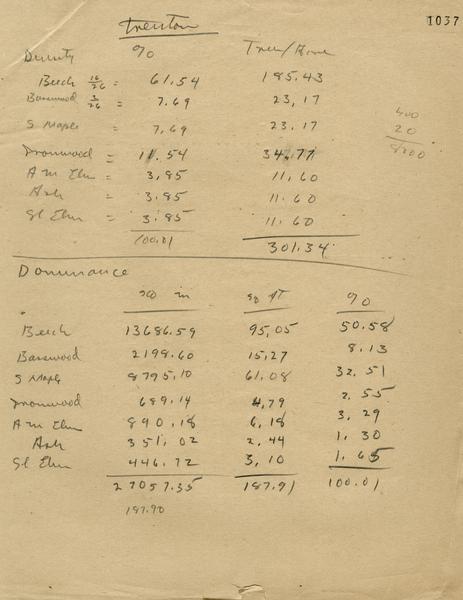 1037
Trenton
Density % Trees/Acre
Beech 16/26 = 61.54 185.43
Basswood 2/26 = 7.69 23,17
S Maple = 7.69 23.17
400
20
8000
Ironwood = 11.54 34.77
Am Elm = 3.85 11.60
Ash = 3.85 11.60
Sl Elm = 3.85 11.60
100.01 301.34
Dominance
sq in sq ft %
Beech 13686.59 95,05 50.58
Basswood 2198.60 15,27 8.13
S Maple 8795,10 61.08 32.51
Ironwood 689.14 4,79 2.55
Am Elm 890.18 6,18 3,29
Ash 351.02 2.44 1.30
Sl Elm 446.72 3,10 1.65
27057.35 187.91 100.01
187.90